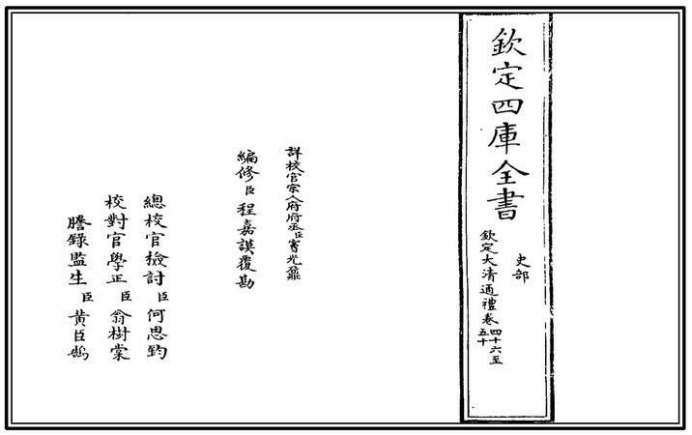 欽定四庫全書
史部
欽定大清通禮卷四十六至五十
詳校官宗人府府丞臣竇光鼐
編修臣程嘉謨覆勘
總校官檢討臣何思鈞
校對官學正臣翁樹棠
謄錄監生臣黃臣鵠